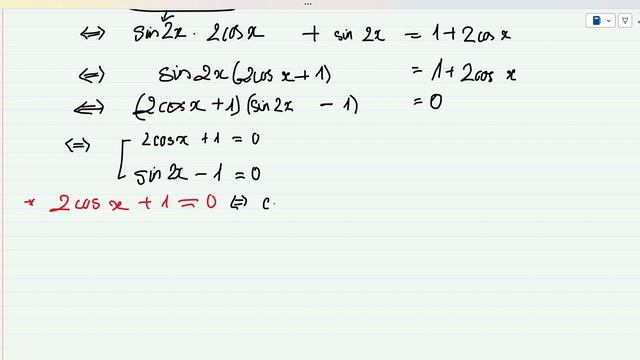 ⇔ sin2x . 2cosx + sin 2x = 1+2cosx
⇔ sin2x(2cosx+1) = 1+2cos x
⇔ (2cosx+1)(sin2x - 1) = 0
⇔ [ 2cosx + 1 = 0
sin2x - 1 = 0
* 2cosx + 1 = 0 ⇔ c